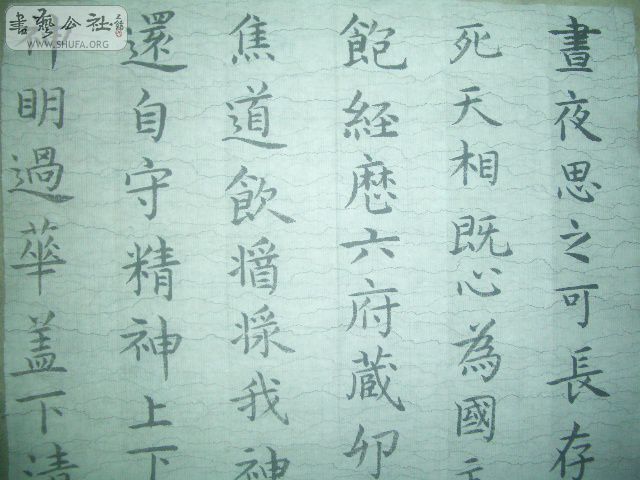 晝夜思之可長存
死天相既心為國主
飽経歴六府蔵卯
焦道飲𤖅採我神
還自守精神上下
神明過華盖下清
書藝公社
WWW.SHUFA.ORG